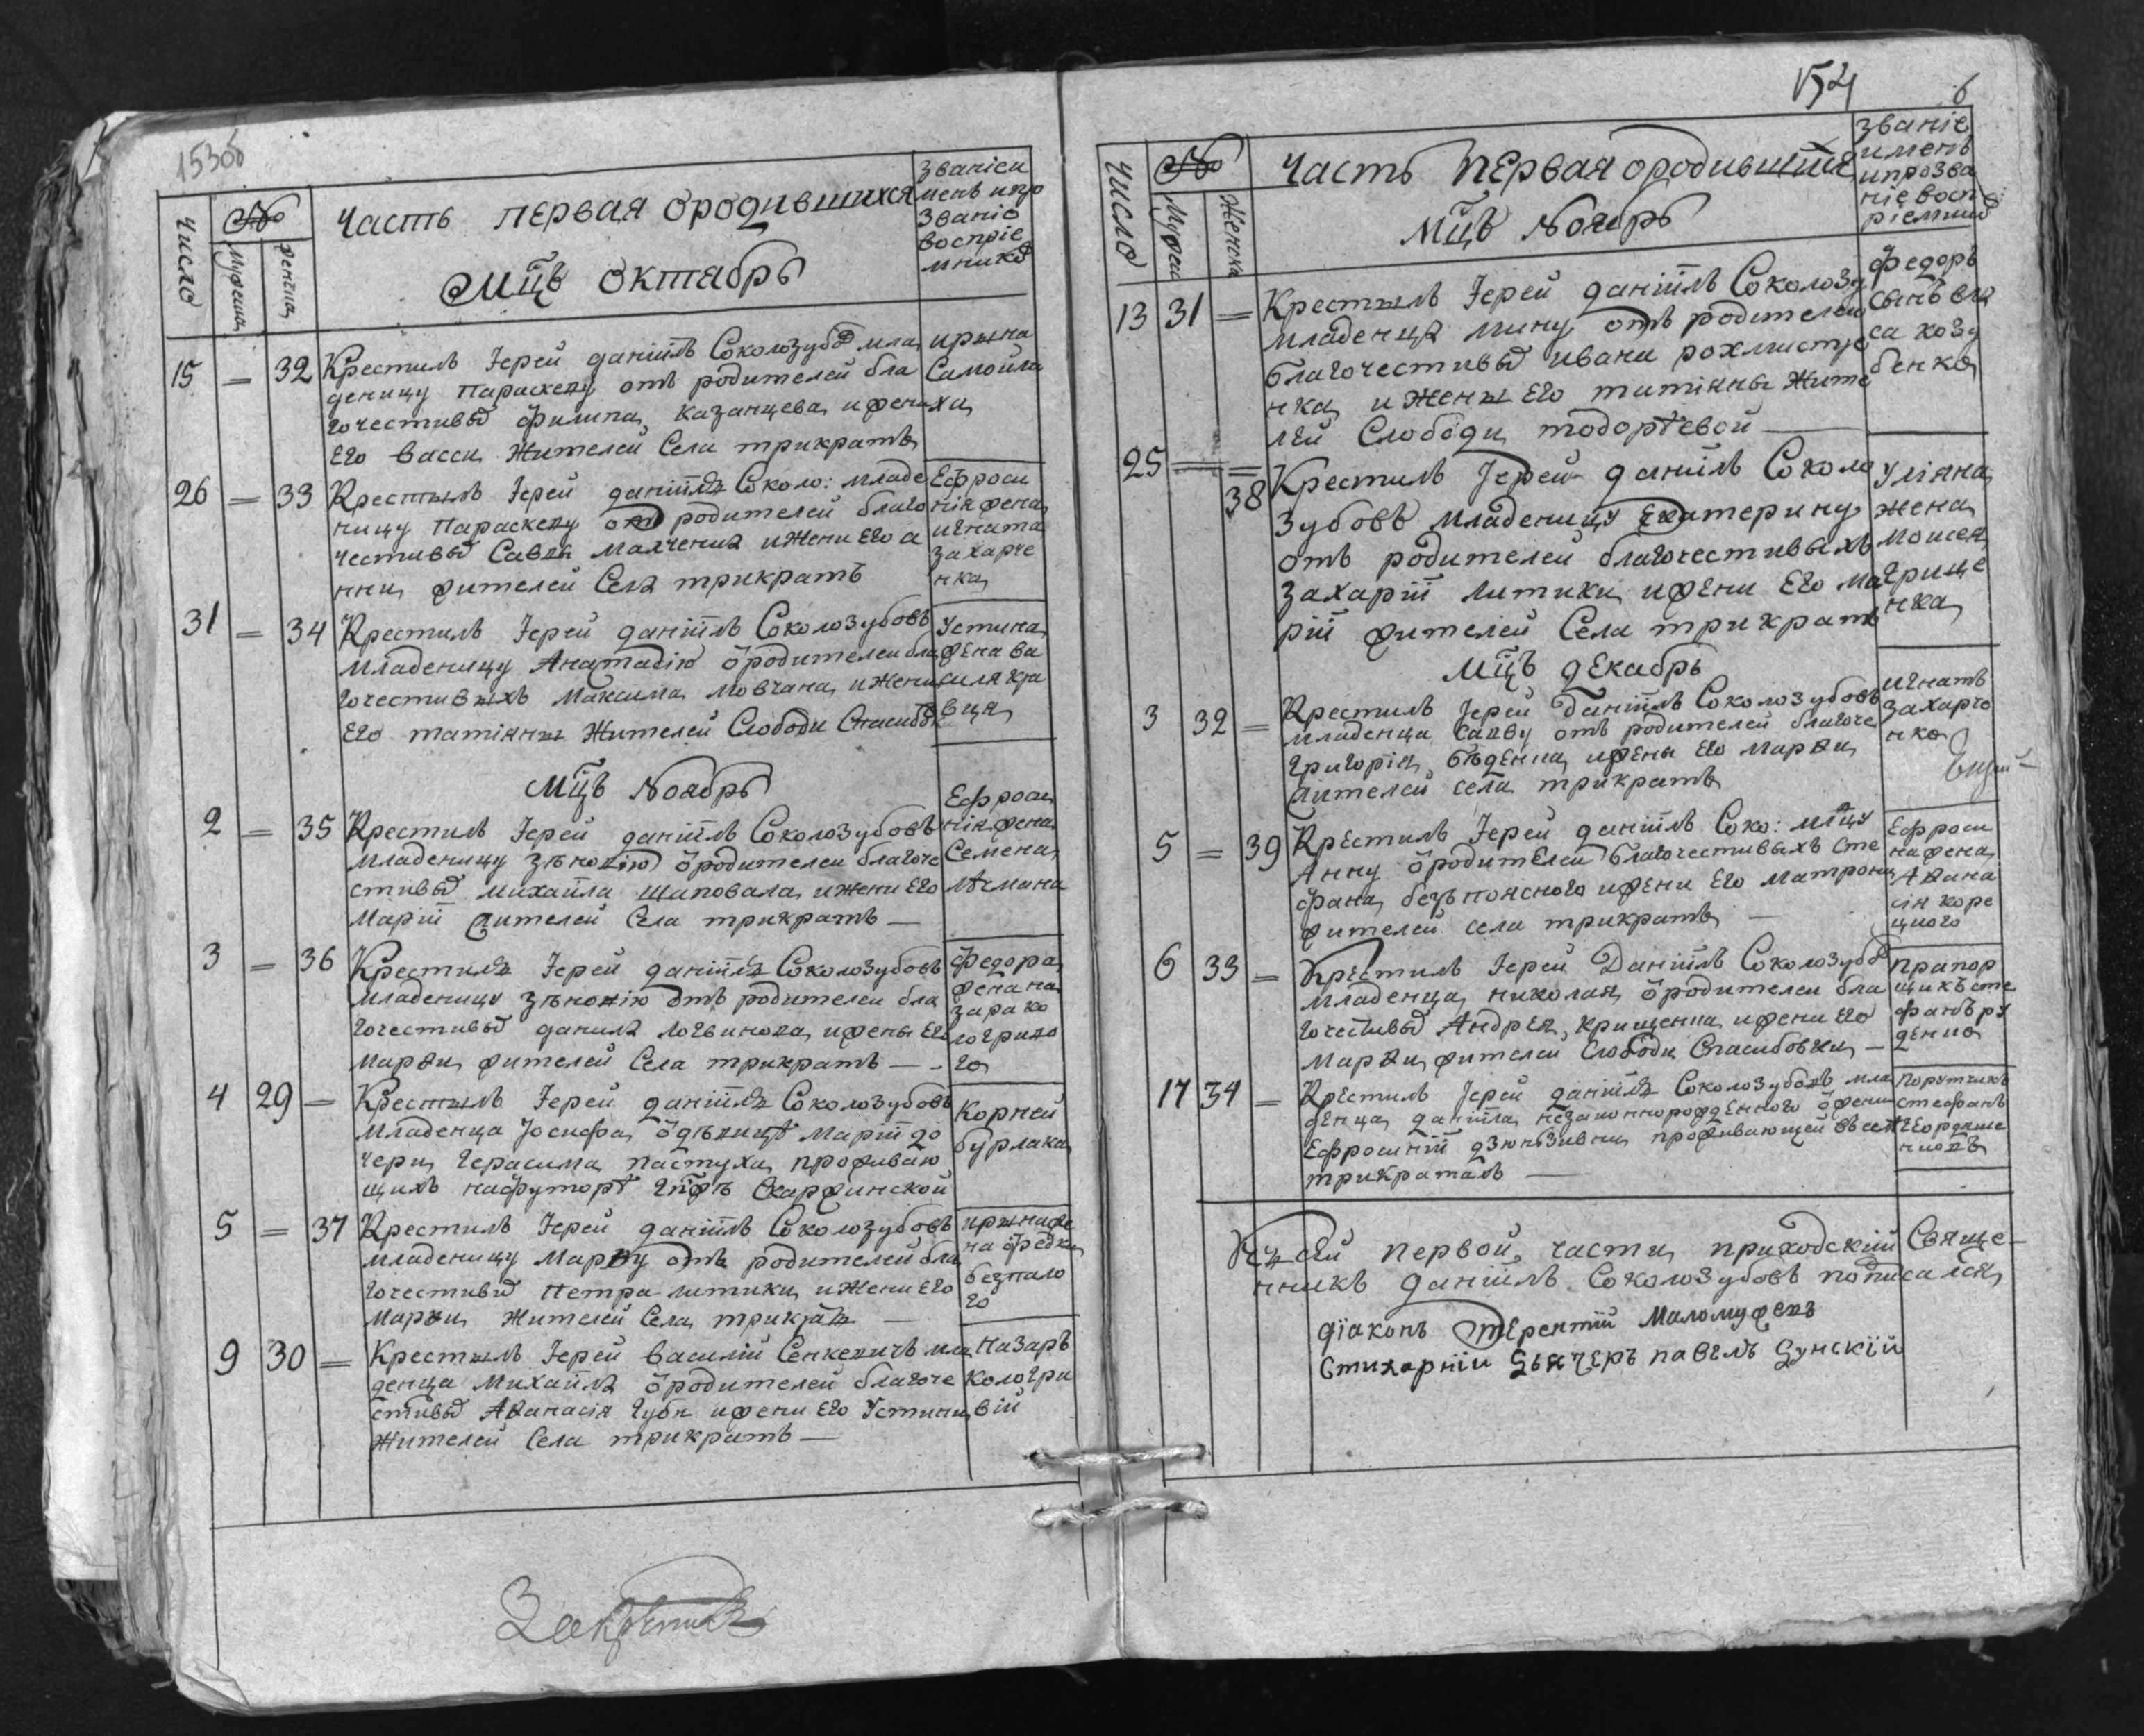 153об
Число
№
Мужеска
Женска
Часть первая ородившихся
Мцъ октябрь
званіеи
мень ипро
званіе
воспріе
мников
15 — 32 Крестилъ Іерей даніилъ Соколозубов мла
деницу параскеву отъ родителей бла
гочестивых филипа казанцева ижени
Его васси жителей Села трикратъ
ирына
Самойла
ха
26 — 33 Крестылъ Іерей даніилъ Соколо: младе
ницу параскеву от родителей благо
честивых Савы малченка ижени Его а
нни жителей Села трикратъ
Ефроси
нія жена
игната
захарче
нка
31 — 34 Крестилъ Іерей даніилъ Соколозубовъ
младеницу Анатасію о родителей бла
гочестивыхъ максима мовчана ижени
Его татіяны жителей Слободи Спасибовк
Устина
жена ва
силя кра
вця
Мцъ Ноябрь
2 — 35 Крестилъ Іерей даніилъ Соколозубовъ
младеницу зѣновію о родителей благоче
стивых михайла шаповала ижени Его
маріи жителей Села трикратъ —
Ефроси
нія жена
Семена
лѣсмана
3 — 36 Крестилъ Іерей даніилъ Соколозубовъ
младеницу зѣновію отъ родителей бла
гочестивых данила логвинова ижены Его
марѳи жителей Села трикратъ — -
федора
жена на
зара ко
логриво
го
4 29 — Крестылъ Іерей даніилъ Соколозубовъ
младенца Іосифа о дѣвицѣ маріи до
чери герасима пастуха проживаю
щихъ нафуторѣ Скаржинской
Корней
бурлака
5 — 37 Крестилъ Іерей даніилъ Соколозубовъ
младеницу Марѳу отъ родителей бла
гочестивых петра литики ижени Его
марѳи жителей Села трикратъ —
ирына же
на федки
безпало
го
9 30 — Крестылъ Іерей василій Сенкевичъ мла
денца михайла о родителей благоче
стивых Аѳанасія губи ижени Его Устини
жителей Села трикратъ —
назаръ
кологри
вій
154
6
Число
№
Мужеск
Женска
Часть первая ородившихся
Мцъ Ноябрь
званіе
именъ
ипрозва
ніе восп
ріемник
13 31 — Крестылъ Іерей даніилъ Соколозу
младенца мину отъ родителей
благочестивых ивана рохмистре
нка и жены Его татіяны жите
лей Слободи тодорѣевой —
федоръ
сынъ вла
са козу
бенка
25 — 38 Крестилъ Іерей даніилъ Соколо
зубовъ младеницу Екатерину
отъ родителей благочестивыхъ
захаріи литики ижени Его ма
ріи жителей Села трикратъ
Уліяна
жена
моисея
грище
нка
Мцъ декабрь
3 32 — Крестилъ Іерей Даніилъ Соколозубовъ
младенца савву отъ родителей благоче
григорія бѣденка ижены Его марѳи
жителей села трикратъ
игнатъ
захарче
нко
5 — 39 Крестилъ Іерей даніилъ Соко: млцу
Анну о родителей благочестивыхъ сте
фана безъпоясного ижени Его матрони
жителей села трикратъ —
Ефроси
на жена
Аѳана
сія коре
цкого
6 33 — Крестилъ Іерей Даніилъ Соколозубов
младенца николая о родителей бла
гочестивых Андрея крищенка ижени его
марѳи жителей слободи Спасибовки —
прапор
щикъ сте
фанъ ру
денко
17 34 — Крестилъ Іерей даніилъ Соколозубовъ мла
денца даніила незаконнорожденного о жени
Ефросиніи дзюнзивни проживающей въ селѣ
трикратахъ —
поручикъ
стефанъ
Кѣ сей первой части приходскій Свяще-
нникъ даніилъ Соколозубовъ подписался
діаконъ терентій маломужевъ
стихарній дьячеръ павелъ дунскій